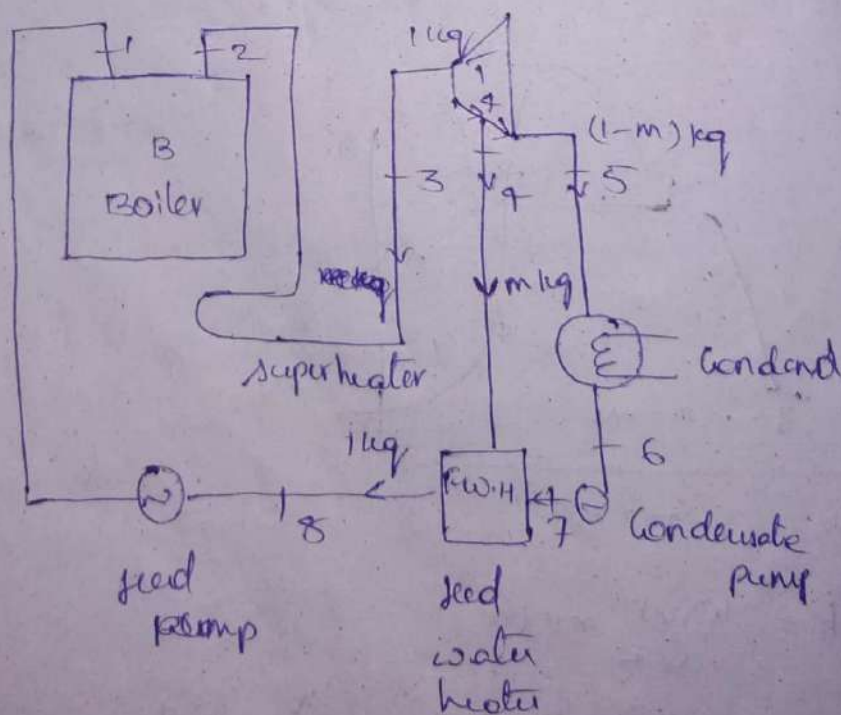 1
2
B
Boiler
1 kg
1
4
(1-m) kg
3
4
5
m kg
superheater
Condend
6
1 kg
F.W.H
7
8
Condensate
pump
feed
pump
feed
water
heater